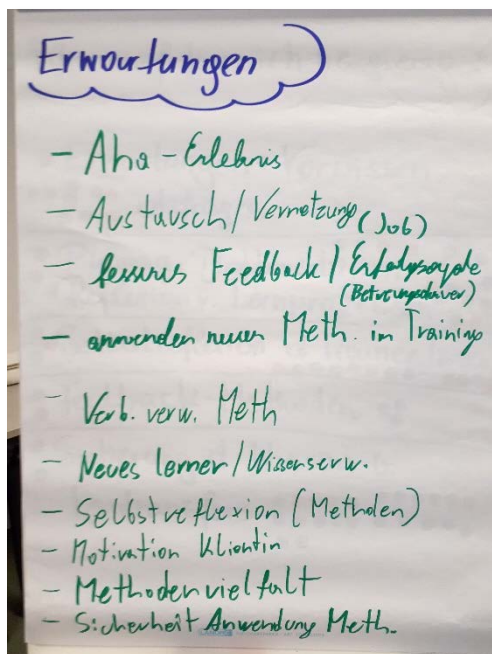 Erwartungen
- Aha-Erlebnis
- Austausch/Vernetzung (Job)
- Feedback/
(Betreuungsdauer)
- anwenden neuer Meth. im Training
- Verb. verw. Meth
- Neues lernen/Wissenserw.
- Selbstreflexion (Methoden)
- Motivation KlientIn
- Methodenvielfalt
- Sicherheit Anwendung Meth.